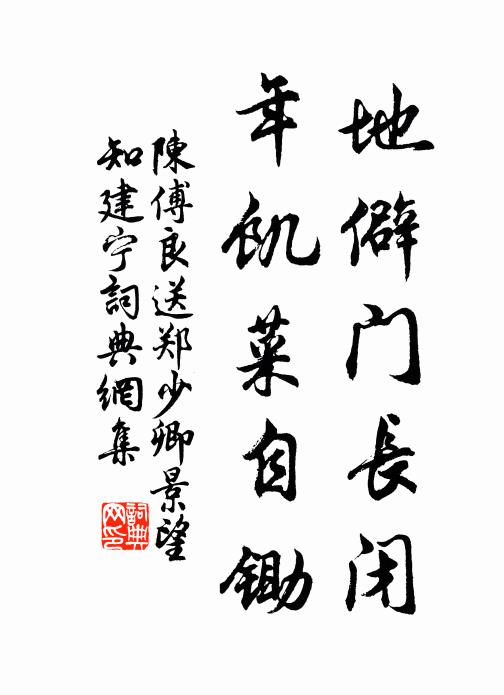 地僻门長闭
年飢菜自锄
陳傅良送郑少卿景望
知建宁詞典網集
詞典
网印